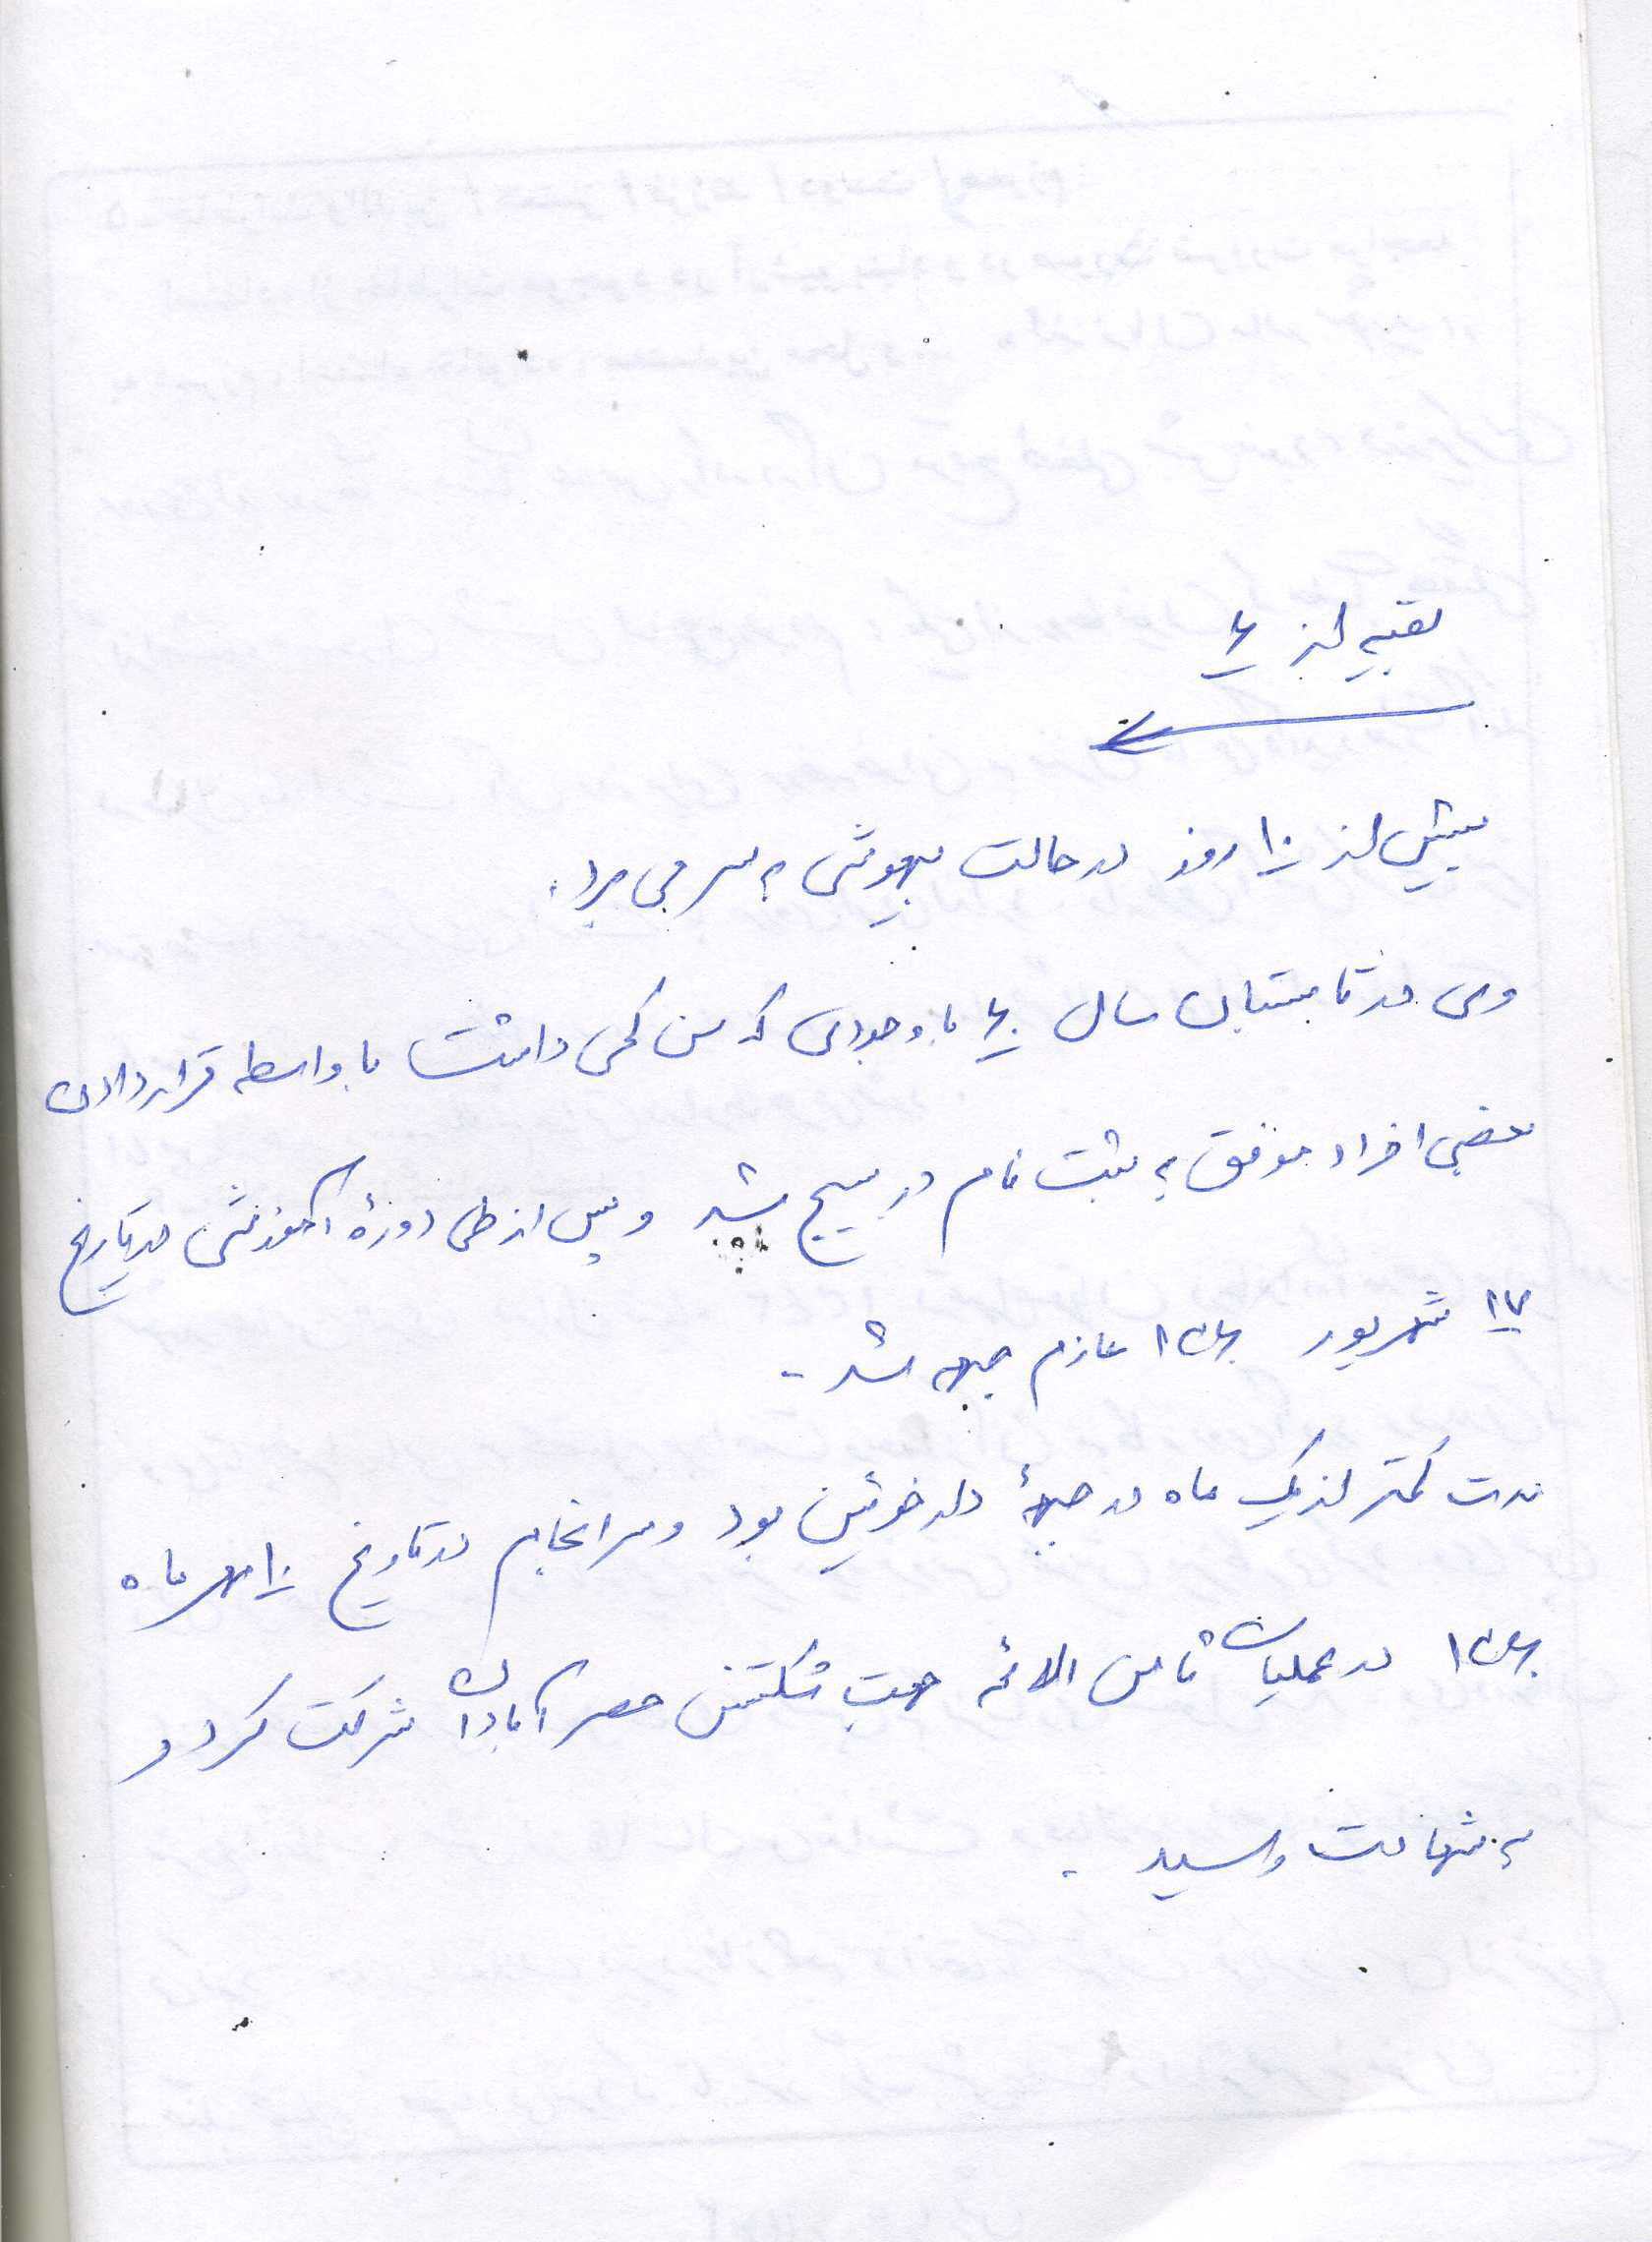 بقیه از ۶
بیش از ۱۰ روز در حالت بیهوشی به سر می برد.
وی در تابستان سال ۶۰ با وجودی که سن کمی داشت با واسطه قرار دادن
بعضی افراد موفق به ثبت نام در بسیج شد و پس از طی دورهٔ آموزشی در تاریخ
۱۷ شهریور ۱۳۶۰ عازم جبهه شد.
مدت کمتر از یک ماه در جبههٔ دارخوئین بود و سرانجام در تاریخ ۱۰ مهر ماه
۱۳۶۰ در عملیات ثامن الائمه جهت شکستن حصر آبادان شرکت کرد و
به شهادت رسید.